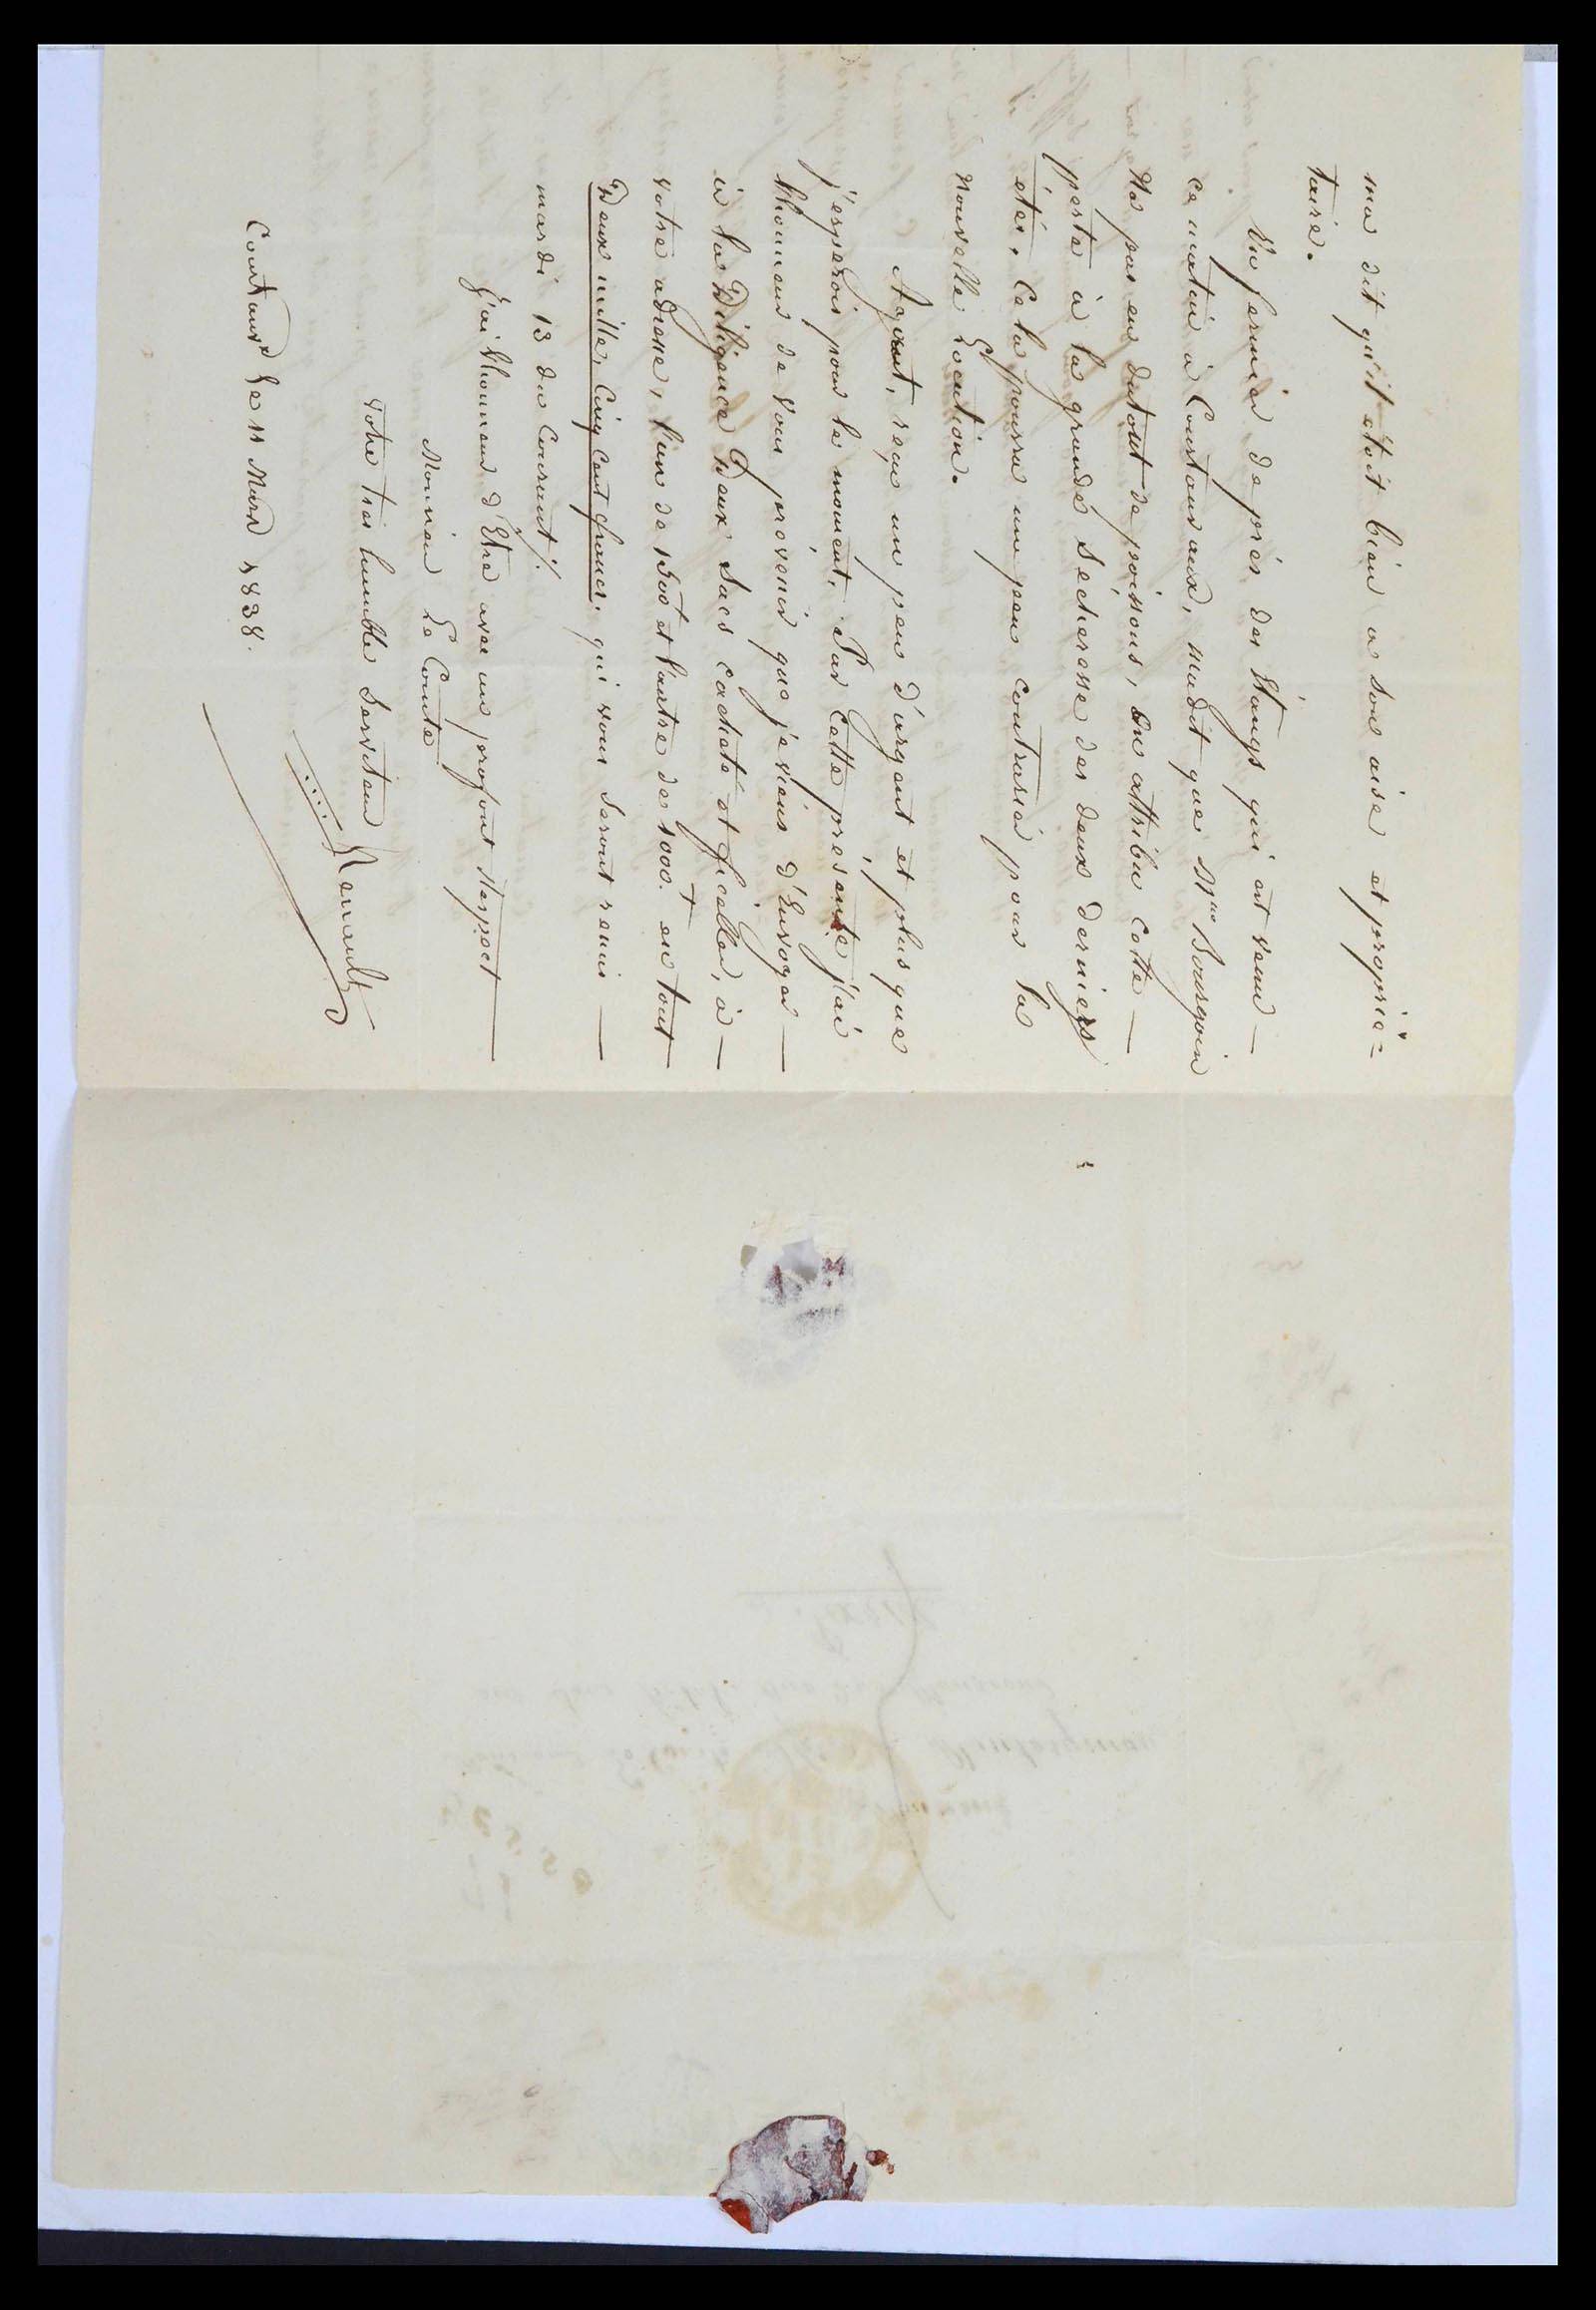 ma dit qu'il étoit bien a son aise et proprié=
taire.
Un fermier de près des Étangs qui est venu
ce matin à Courtavaux, madit que Mr Bourgoin
Na pas eu dutout de poissons, on attribu cette
perte à la grande Secheresse des deux derniers
étés. Cela pourra un peu contrarier pour la
Nouvelle Location.
Ayant, reçu un peu d'argent et plus que
j'esperois pour le moment. Par Cette présente j'ai
l'honneur de vous prévenir que je viens d'Envoyer
à la Diligence Deux Sacs cacheté et ficeller, à
votre adresse, l'un de 1500 et l'autre de 1000. en tout
Deux mille, Cinq Cent francs. qui vous seront remis
mardi 13 du Courant ./.
J'ai l'honneur d'Être avec un profont Respect
Monsieur Le Comte
Votre très humble Serviteur
Renault
Courtavx Le 11 Mars 1838.